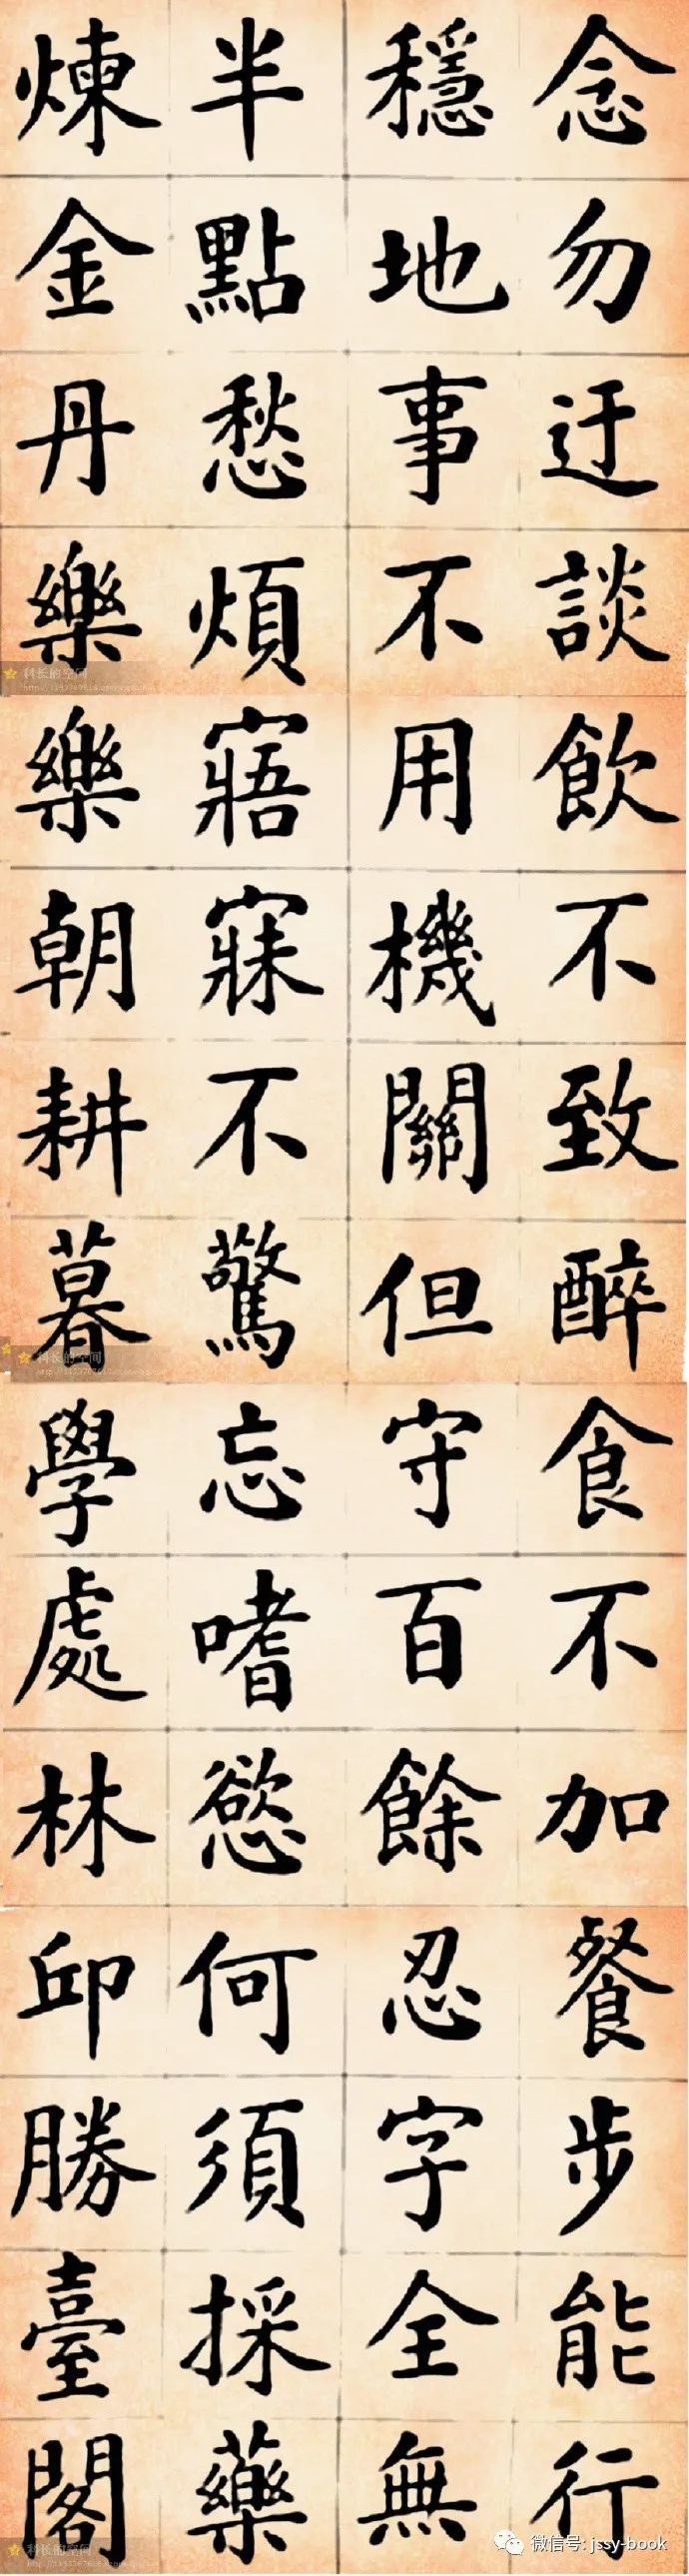 念勿迂談飲不致醉食不加餐步能行
穩地事不用機關但守百餘忍字全無
半點愁煩寤寐不驚忘嗜慾何須採藥
煉金丹樂樂朝耕暮學處林邱勝臺閣
科长的空间
科长的空间
科长的空间
微信号: jssy-book